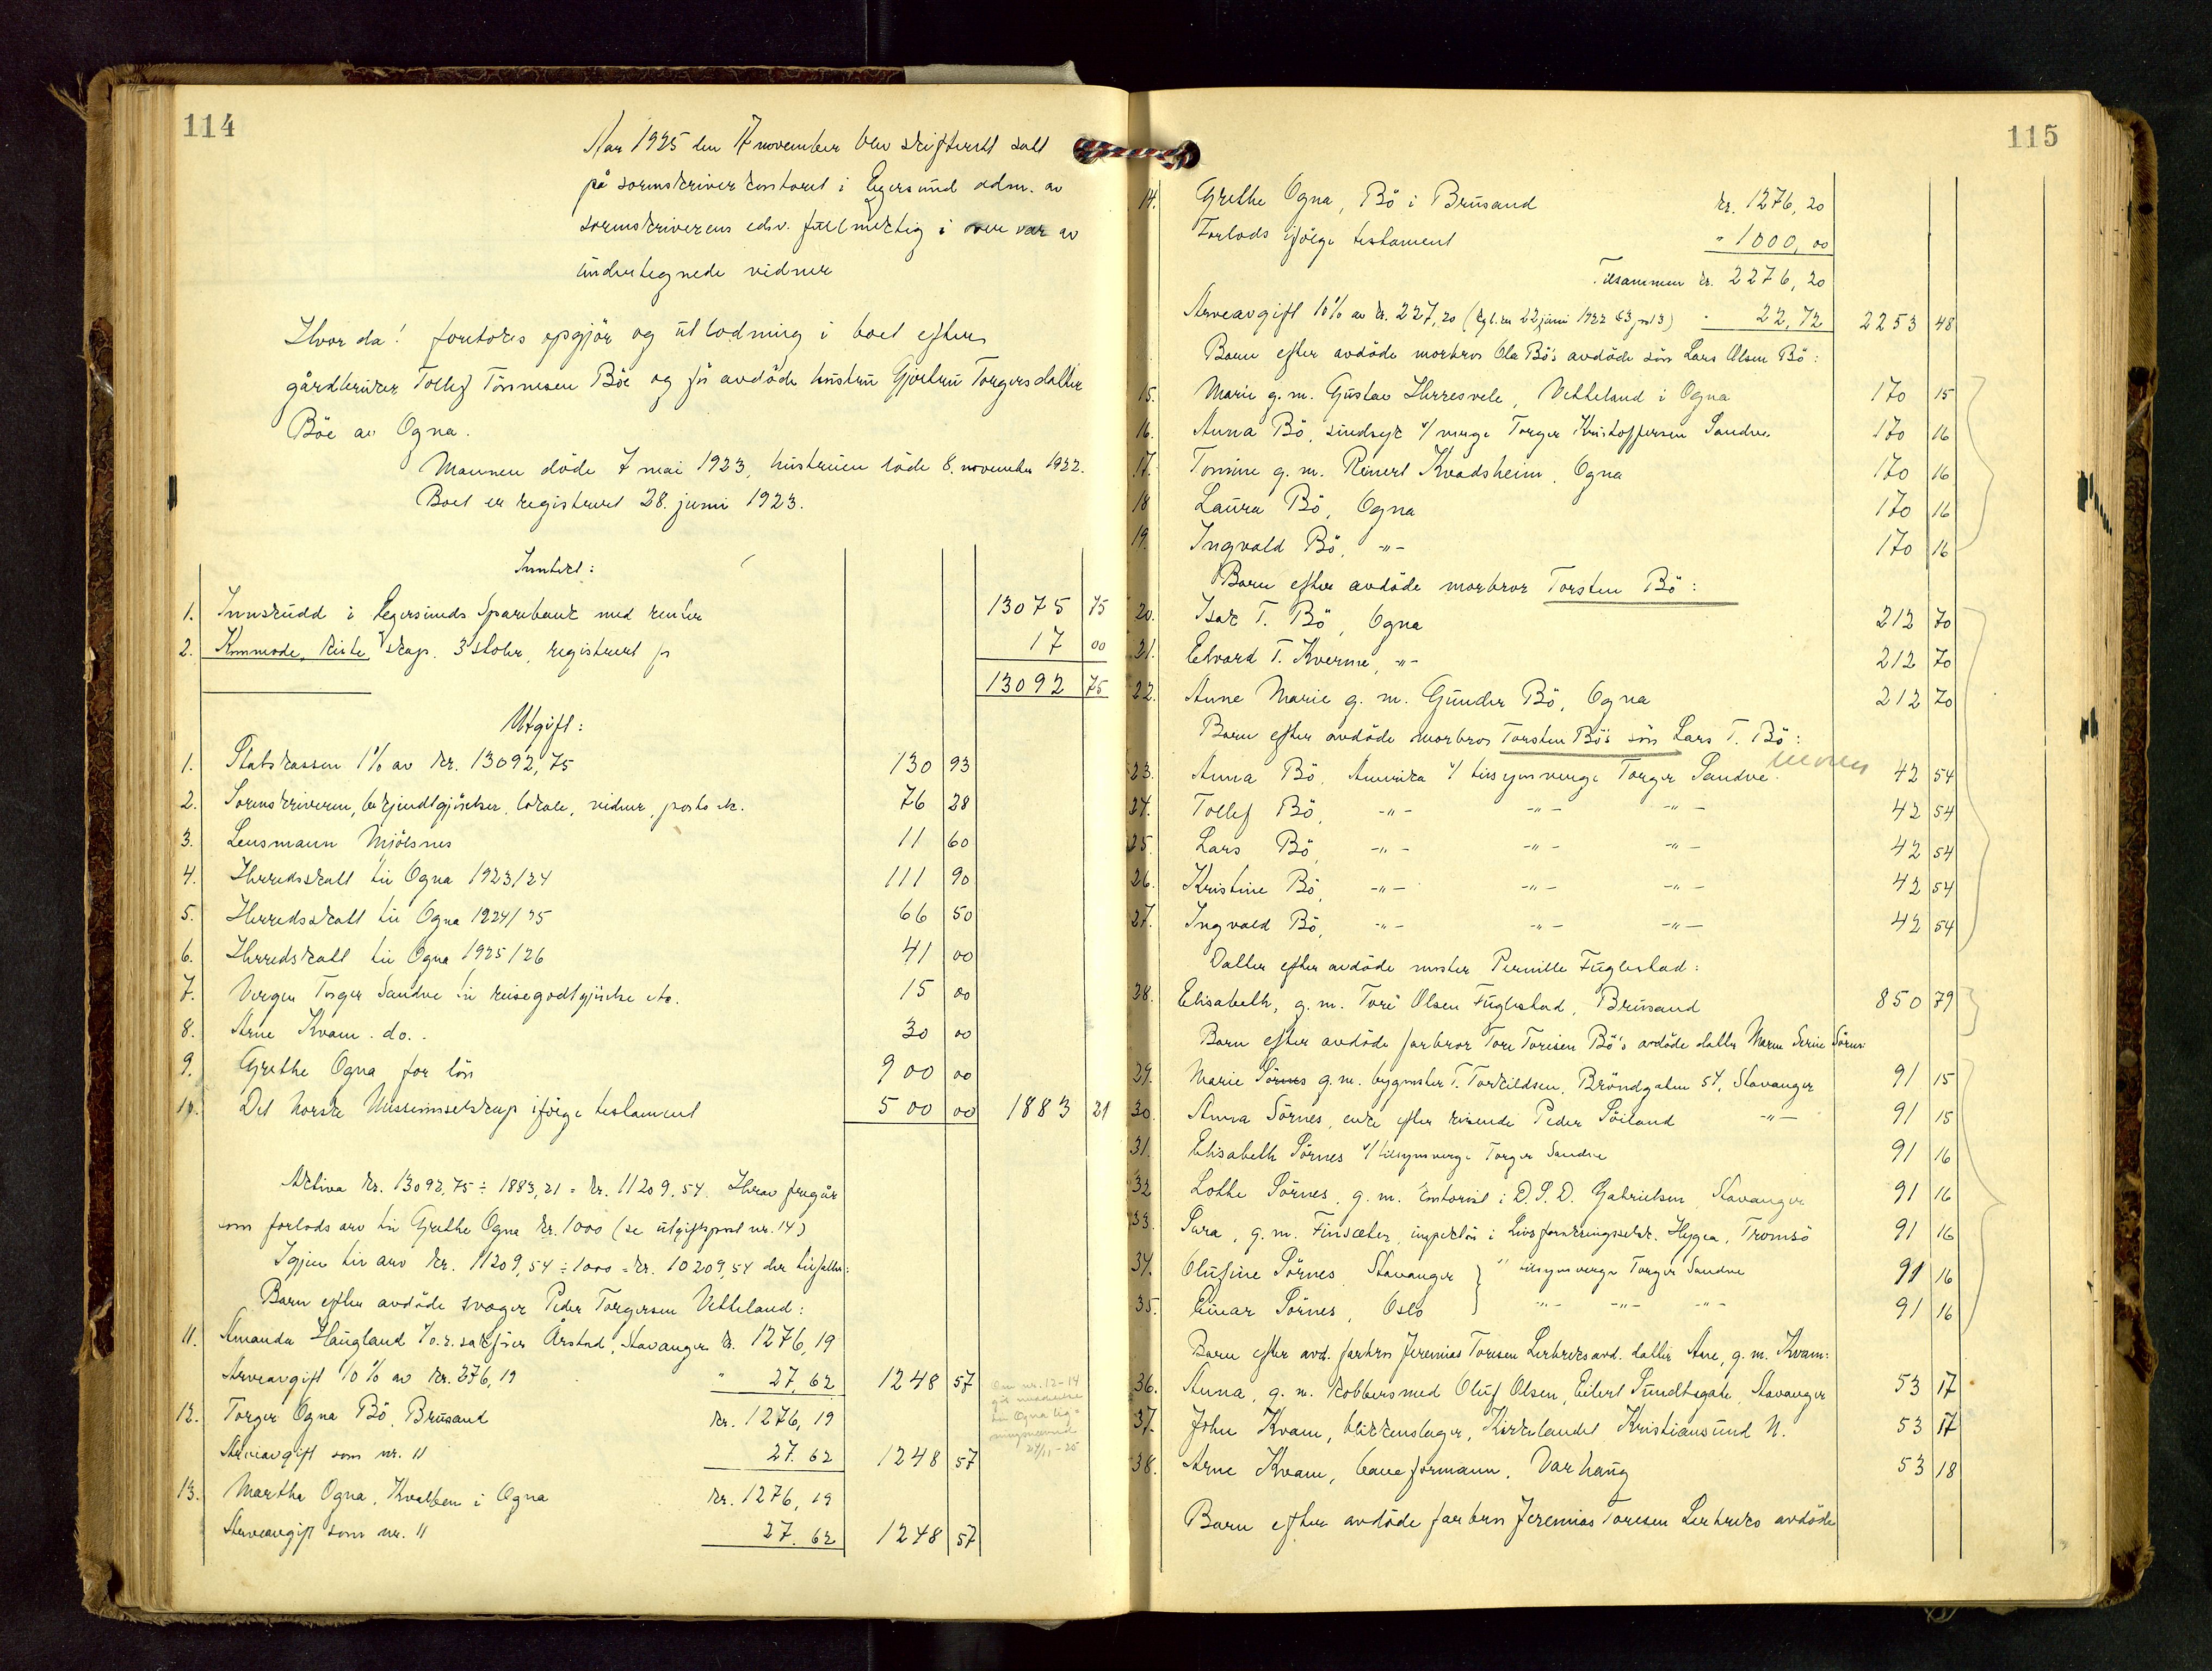 114
Aar 1925 den 17 november blev skifterett satt
på sorenskriverkontoret i Egersund adm. av
sorenskriverens edsv. fullmektig i overvær av
undertegnede vidner
Hvor da! foretokes opgjör og utlodning i boet efter
gårdbruker Tollef Tönnesen Böe og för avdöde hustru Gjertru Torgersdatter
Böe av Ogna.
Mannen döde 7 mai 1923, hustruen döde 8. november 1922.
Boet er registrert 28. juni 1923.
Inntekt:
1. Innskudd i Egersunds Sparebank med renter 13075 75
2. Kommode, kiste skap. 3 stoler, registrert p 17 00
13092 75
Utgift:
1. Statskassen 1% av kr. 13092,75 130 93
2. Sorenskriveren, bekjendtgjörelser, lokale, vidner, porto etc. 76 28
3. Lensmann Mjölsnes 11 60
4. Herredsskatt til Ogna 1923/24 111 90
5. Herredsskatt til Ogna 1924/25 66 50
6. Herredskatt til Ogna 1925/26 41 00
7. Vergen Torger Sandve til reisegodtgjörelse etc. 15 00
8. Arne Kvam. do.. 30 00
9. Grethe Ogna for lön 900 00
10. Det Norske Missionsselskap ifölge testament 500 00 1883 21
Aktiva kr. 13092,75 ÷ 1883,21 = kr. 11209,54. Herav fregår
som forlods arv til Grethe Ogna kr. 1000 (se utgiftspost nr. 14)
Igjen til arv kr. 11209,54 ÷ 1000 = kr. 10209,54 der tilfaller:
Barn efter avdöde svoger Peder Torgersen Vetteland:
11. Amanda Haugland v/o.r.sakförer Årstad, Stavanger kr. 1276,19
Arveavgift 10% av kr. 276,19 " 27,62 1248 57
12. Torger Ogna Bö, Brusand kr. 1276,19
Arveavgift som nr. 11 27.62 1248 57
13. Martha Ogna, Kvalben i Ogna kr. 1276,19
Arveavgift som nr. 11 27.62 1248 57
Om nr. 12-14
git meddelelse
til Ogna lig=
ningsnevnd
24/11-25
115
14. Grethe Ogna, Bö i Brusand kr. 1276,20
Forlods ifölge testament " 1000,00
Tilsammen kr. 2276,20
Arveavgift 10% av kr. 227,20 (kgl. res 22 juni 1922 § 3 pst 3) " 22,72 2253 48
Barn efter avdöde morbror Ola Bö's avdöde sön Lars Olsen Bö:
15. Marie g.m. Gustav Herresvele, Vetteland i Ogna 170 15
16. Anna Bö, sindsyk v/ verge Torger Kristoffersen Sandve 170 16
17. Tomine g.m. Reinert Kvadsheim, Ogna 170 16
18 Laura Bö, Ogna 170 16
19. Ingvald Bö, -"- 170 16
Barn efter avdöde morbror Torsten Bö:
20. Isak T. Bö, Ogna 212 70
21. Edvard T. Kverme, -"- 212 70
22. Anne Marie g.m. Gunder Bö, Ogna 212 70
Barn efter avdöde morbror Torsten Bö's sön Lars T. Bö:
23. Anna Bö, Amerika v/ tilsynsverge Torger Sandve. 42 54
24. Tollef Bö, -"- -"- -"- 42 54
25. Lars Bö, -"- -"- -"- 42 54
26. Kristine Bö, -"- -"- -"- 42 54
27. Ingvald Bö, -"- -"- -"- 42 54
Datter efter avdöde moster Pernille Fuglestad:
28. Elisabeth, g.m. Tore Olsen Fuglestad, Brusand 850 79
Barn efter avdöde farbror Tore Toresen Bö's avdöde datter Maren Serine Sörnes
29. Marie Sörnes g.m. bygmster T. Torkildsen, Bröndgaten 54, Stavanger 91 15
30. Anna Sörnes, enke efter reisende Peder Söiland -"- 91 15
31. Elisabeth Sörnes v/ tilsynsverge Torger Sandve 91 16
32 Lothe Sörnes, g.m. kontorist i D.S.D. Gabrielsen Stavanger 91 16
33. Sara, g.m. Finsæter, inspektör i Livsforsikringsselsk. Hygea, Tromsö 91 16
34. Olufine Sörnes, Stavanger } v/ tilsynsverge Torger Sandve 91 16
35. Einar Sörnes, Oslo } -"- -"- -"- 91 16
Barn efter avd. farbror Jeremias Toresen Lerbreks avd. datter Ane, g.m. Kvam:
36. Anna, g.m. kobbersmed Oluf Olsen, Eilert Sundtsgate, Stavanger 53 17
37. John Kvam, blikkenslager, Kirkelandet Kristiansund N. 53 17
38. Arne Kvam, baneformann, Varhaug 53 18
Barn efter avdöde farbror Jeremias Toresen Lerbreks avdöde